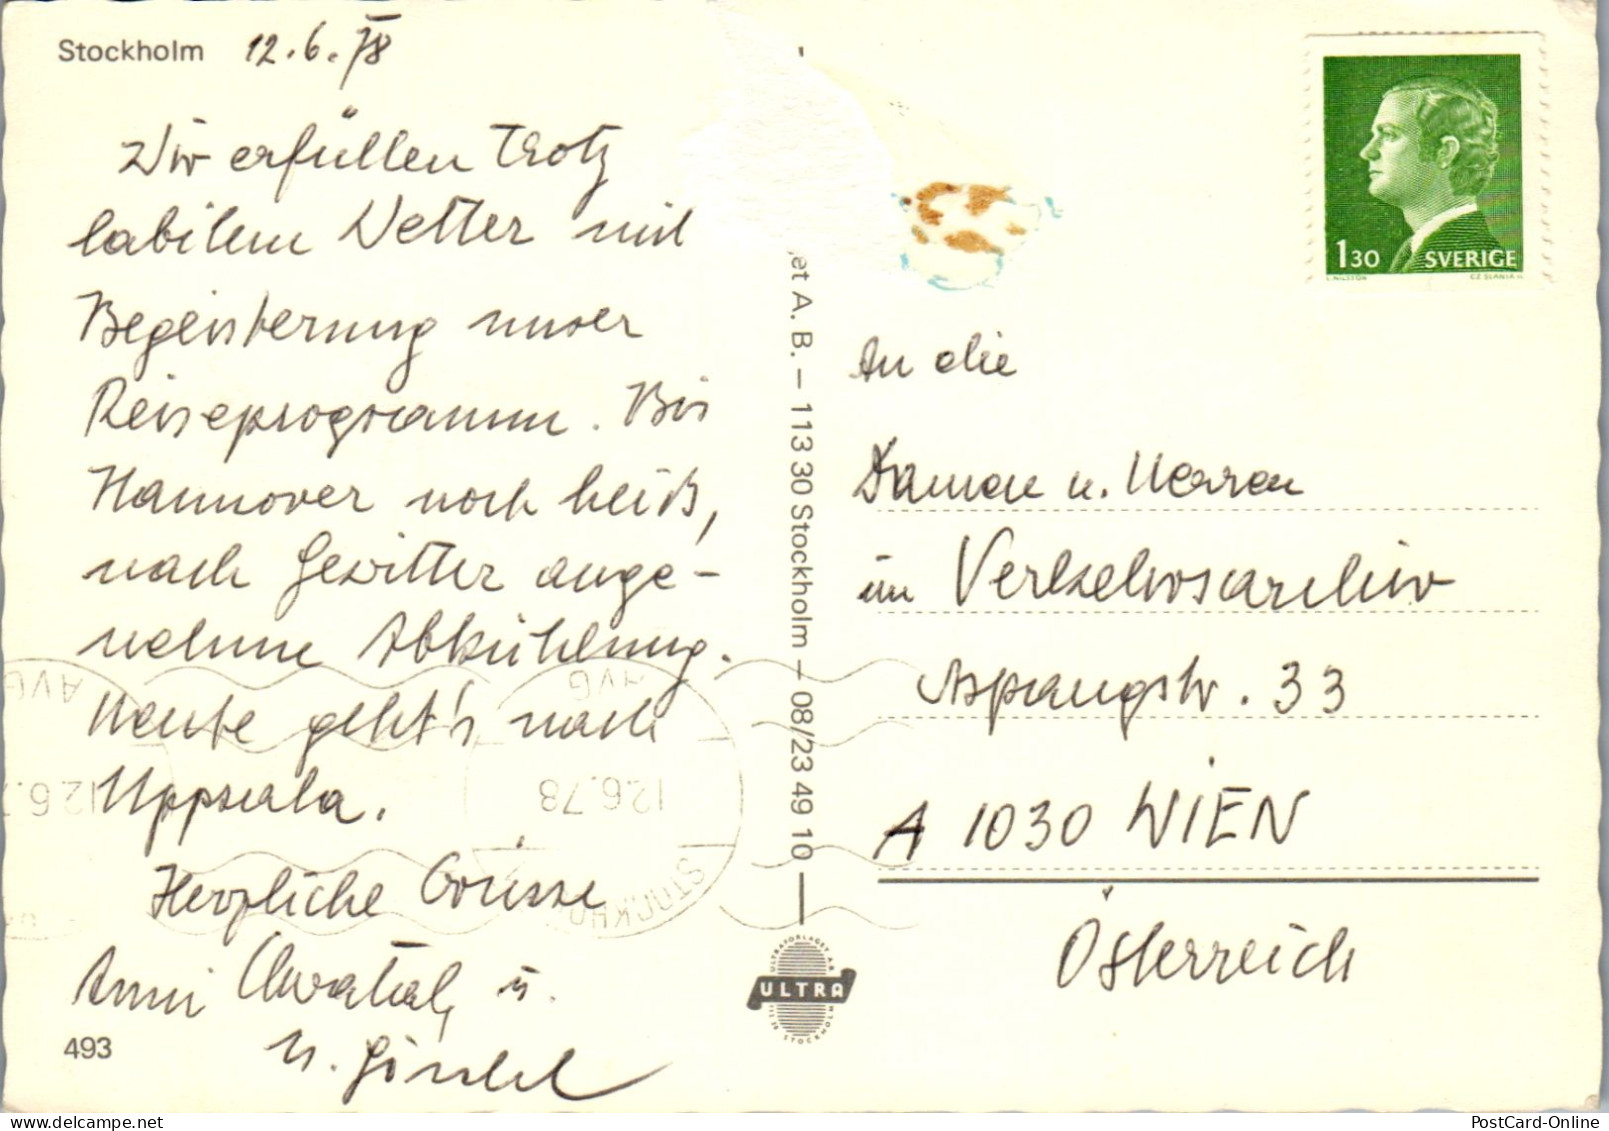 Stockholm 12.6.78
Wir erfüllen trotz
labilem Wetter mit
Begeisterung unser
Reiseprogramm. Bis
Hannover noch heiß,
nach Gewitter ange-
nehme Abkühlung.
Heute geht's nach
Uppsala.
Herzliche Grüsse
Anni Chwatal u.
493
et A. B. – 113 30 Stockholm – 08/23 49 10
ULTRA
1 30 SVERIGE
An die
Damen u. Herren
im Verkehrsarchiv
Aspangstr. 33
A 1030 WIEN
Österreich
12.6.78
STOCKHOLM
PostCard-Online